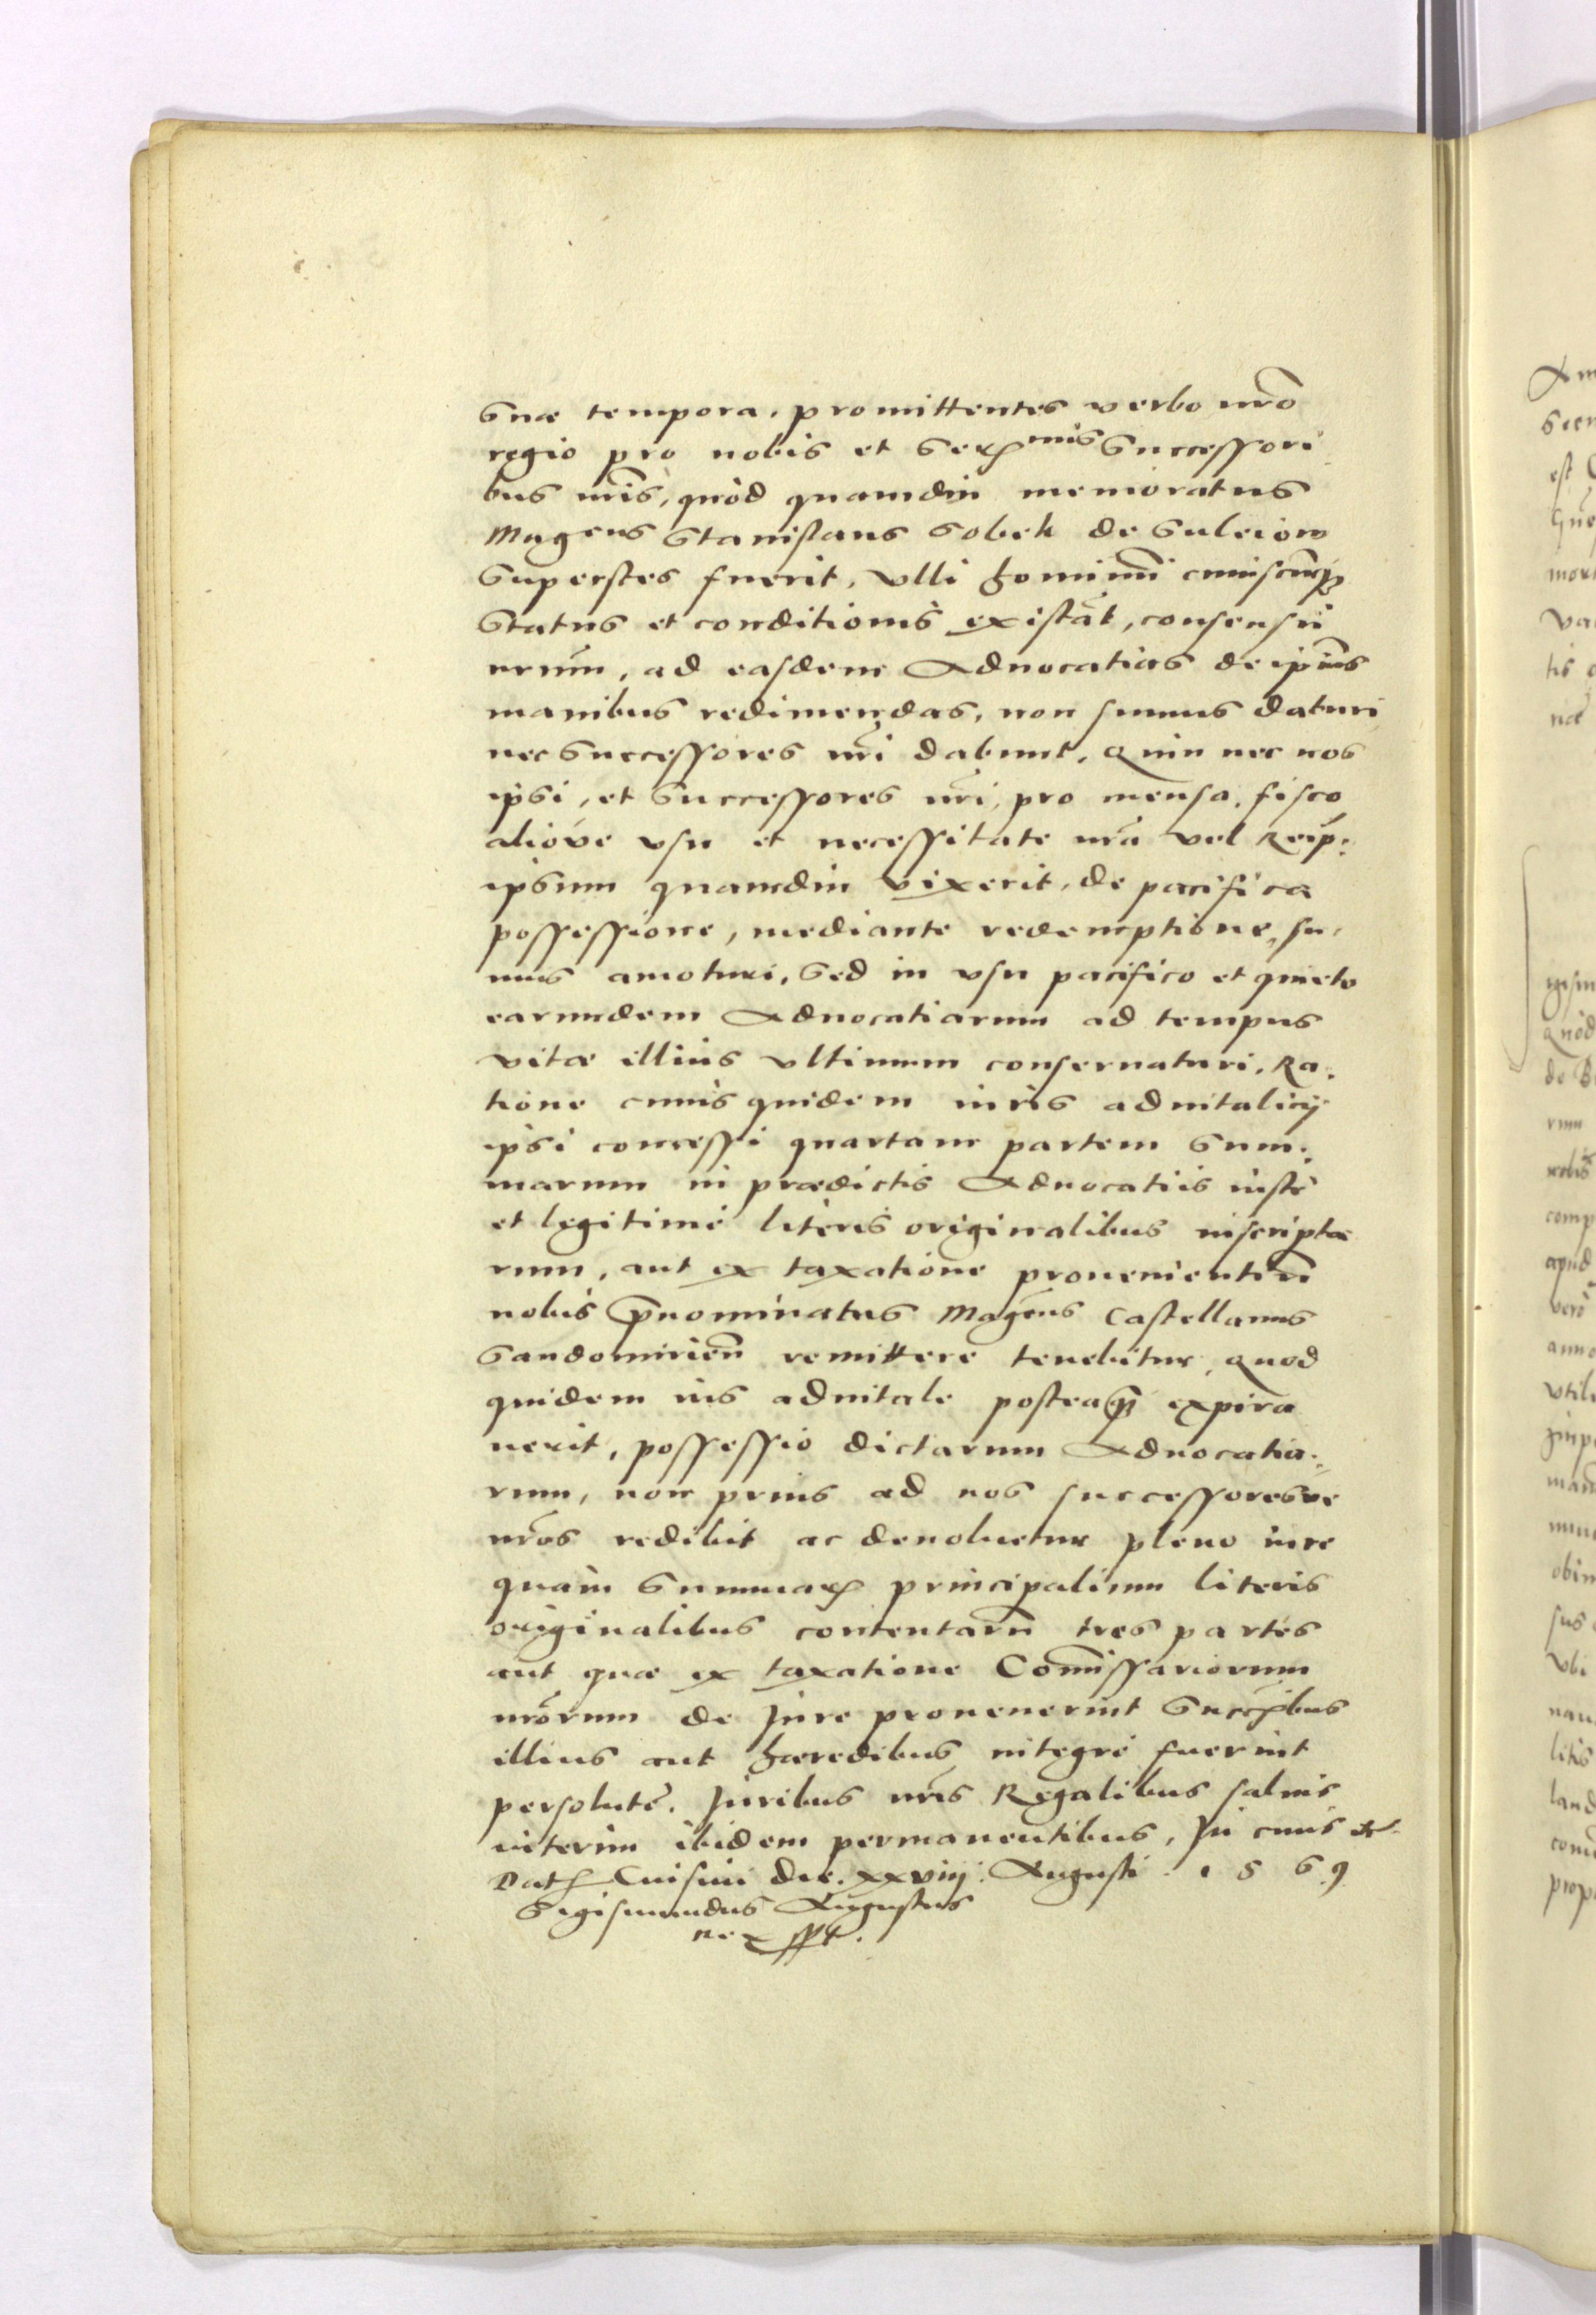 suæ tempora, promittentes verbo nr̃o
regio pro nobis et Serꝭmis Successori
bus nr̃is, quòd quamdiu memoratus
Mag̃cus Stanislaus Sobek de Suleiow
Superstes fuerit, vlli homini cuiuscũqꝫ
Status et conditionis existãt, consensũ
nrũm, ad easdem Aduocatias de ip̃ius
manibus redimendas, non sumus daturi
nec Successores nr̃i dabunt, Quin nec nos
ipsi, et Successores nr̃i, pro mensa, fisco
alióve vsu et necessitate nr̃a vel Reip̃:
ipsum quamdiu vixerit, de pacifica
possessione, mediante redemptione, su,
mus amoturi, Sed in vsu pacifico et quieto
earumdem Aduocatiarum ad tempus
vitæ illius vltimum conseruaturi, Ra,
tione cuius quidem iuris aduitalicij
ipsi concessi quartam partem Sum,
marum in prædictis Aduocatiis iustè
et legitimè literis originalibus inscripta
rum, aut ex taxatione prouenientiũ
nobis p̃nominatus Mag̃cus Castellanus
Sandomirieñ remittere tenebitur, Quod
quidem ius aduitale posteaꝗ̃ expira
uerit, possessio dictarum Aduocatia,
rum, non prius ad nos successoresve
nr̃os redibit ac deuoluetur pleno iure
quàm Summarꝭ principalium literis
originalibus contentarũ tres partes
aut quæ ex taxatione Com̃issariorum
nr̃orum de Jure prouenerint Succꝭibus
illius aut hæredibus integrè fuerint
persolutę. Juribus nr̃is Regalibus saluis
interim ibidem permanentibus, In cuius etc.
Datꝭ Cnisini die. xxviij. Augusti. 1569
Sigismundus Augustus
Rex sst.